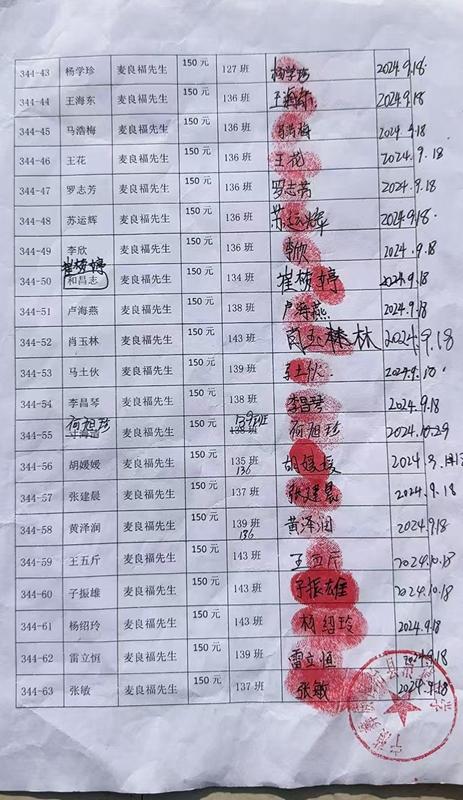 344-43 杨学珍 麦良福先生 150元 127班 杨学珍 2024.9.18.
344-44 王海东 麦良福先生 150元 136班 王海东 2024.9.18
344-45 马浩梅 麦良福先生 150元 136班 马浩梅 2024.9.18
344-46 王花 麦良福先生 150元 136班 王花 2024.9.18
344-47 罗志芳 麦良福先生 150元 136班 罗志芳 2024.9.18
344-48 苏运辉 麦良福先生 150元 136班 苏运辉 2024.9.18.
344-49 李欣 麦良福先生 150元 136班 李欣 2024.9.18
崔梦婷
344-50 和昌志 麦良福先生 150元 134班 崔梦婷 2024.9.18
344-51 卢海燕 麦良福先生 150元 138班 卢海燕 2024.9.18
344-52 肖玉林 麦良福先生 150元 143班 肖玉林 2024.9.18
344-53 马土伙 麦良福先生 150元 139班 马土伙 2024.9.18
344-54 李昌琴 麦良福先生 150元 138班 李昌琴 2024.9.18
荷旭珍 139班
344-55 麦良福先生 150元 138班 荷旭珍 2024.10.29
344-56 胡媛媛 麦良福先生 150元 135班 胡媛媛 2024.9.
136
344-57 张建晨 麦良福先生 150元 137班 张建晨 2024.9.18
344-58 黄泽润 麦良福先生 150元 139班 黄泽润 2024.9.18
136
344-59 王五斤 麦良福先生 150元 143班 王五斤 2024.10.18
344-60 子振雄 麦良福先生 150元 143班 子振雄 2024.10.18
344-61 杨绍玲 麦良福先生 150元 143班 杨绍玲 2024.9.18
344-62 雷立恒 麦良福先生 150元 139班 雷立恒 2024.9.18
344-63 张敏 麦良福先生 150元 137班 张敏 2024.9.18